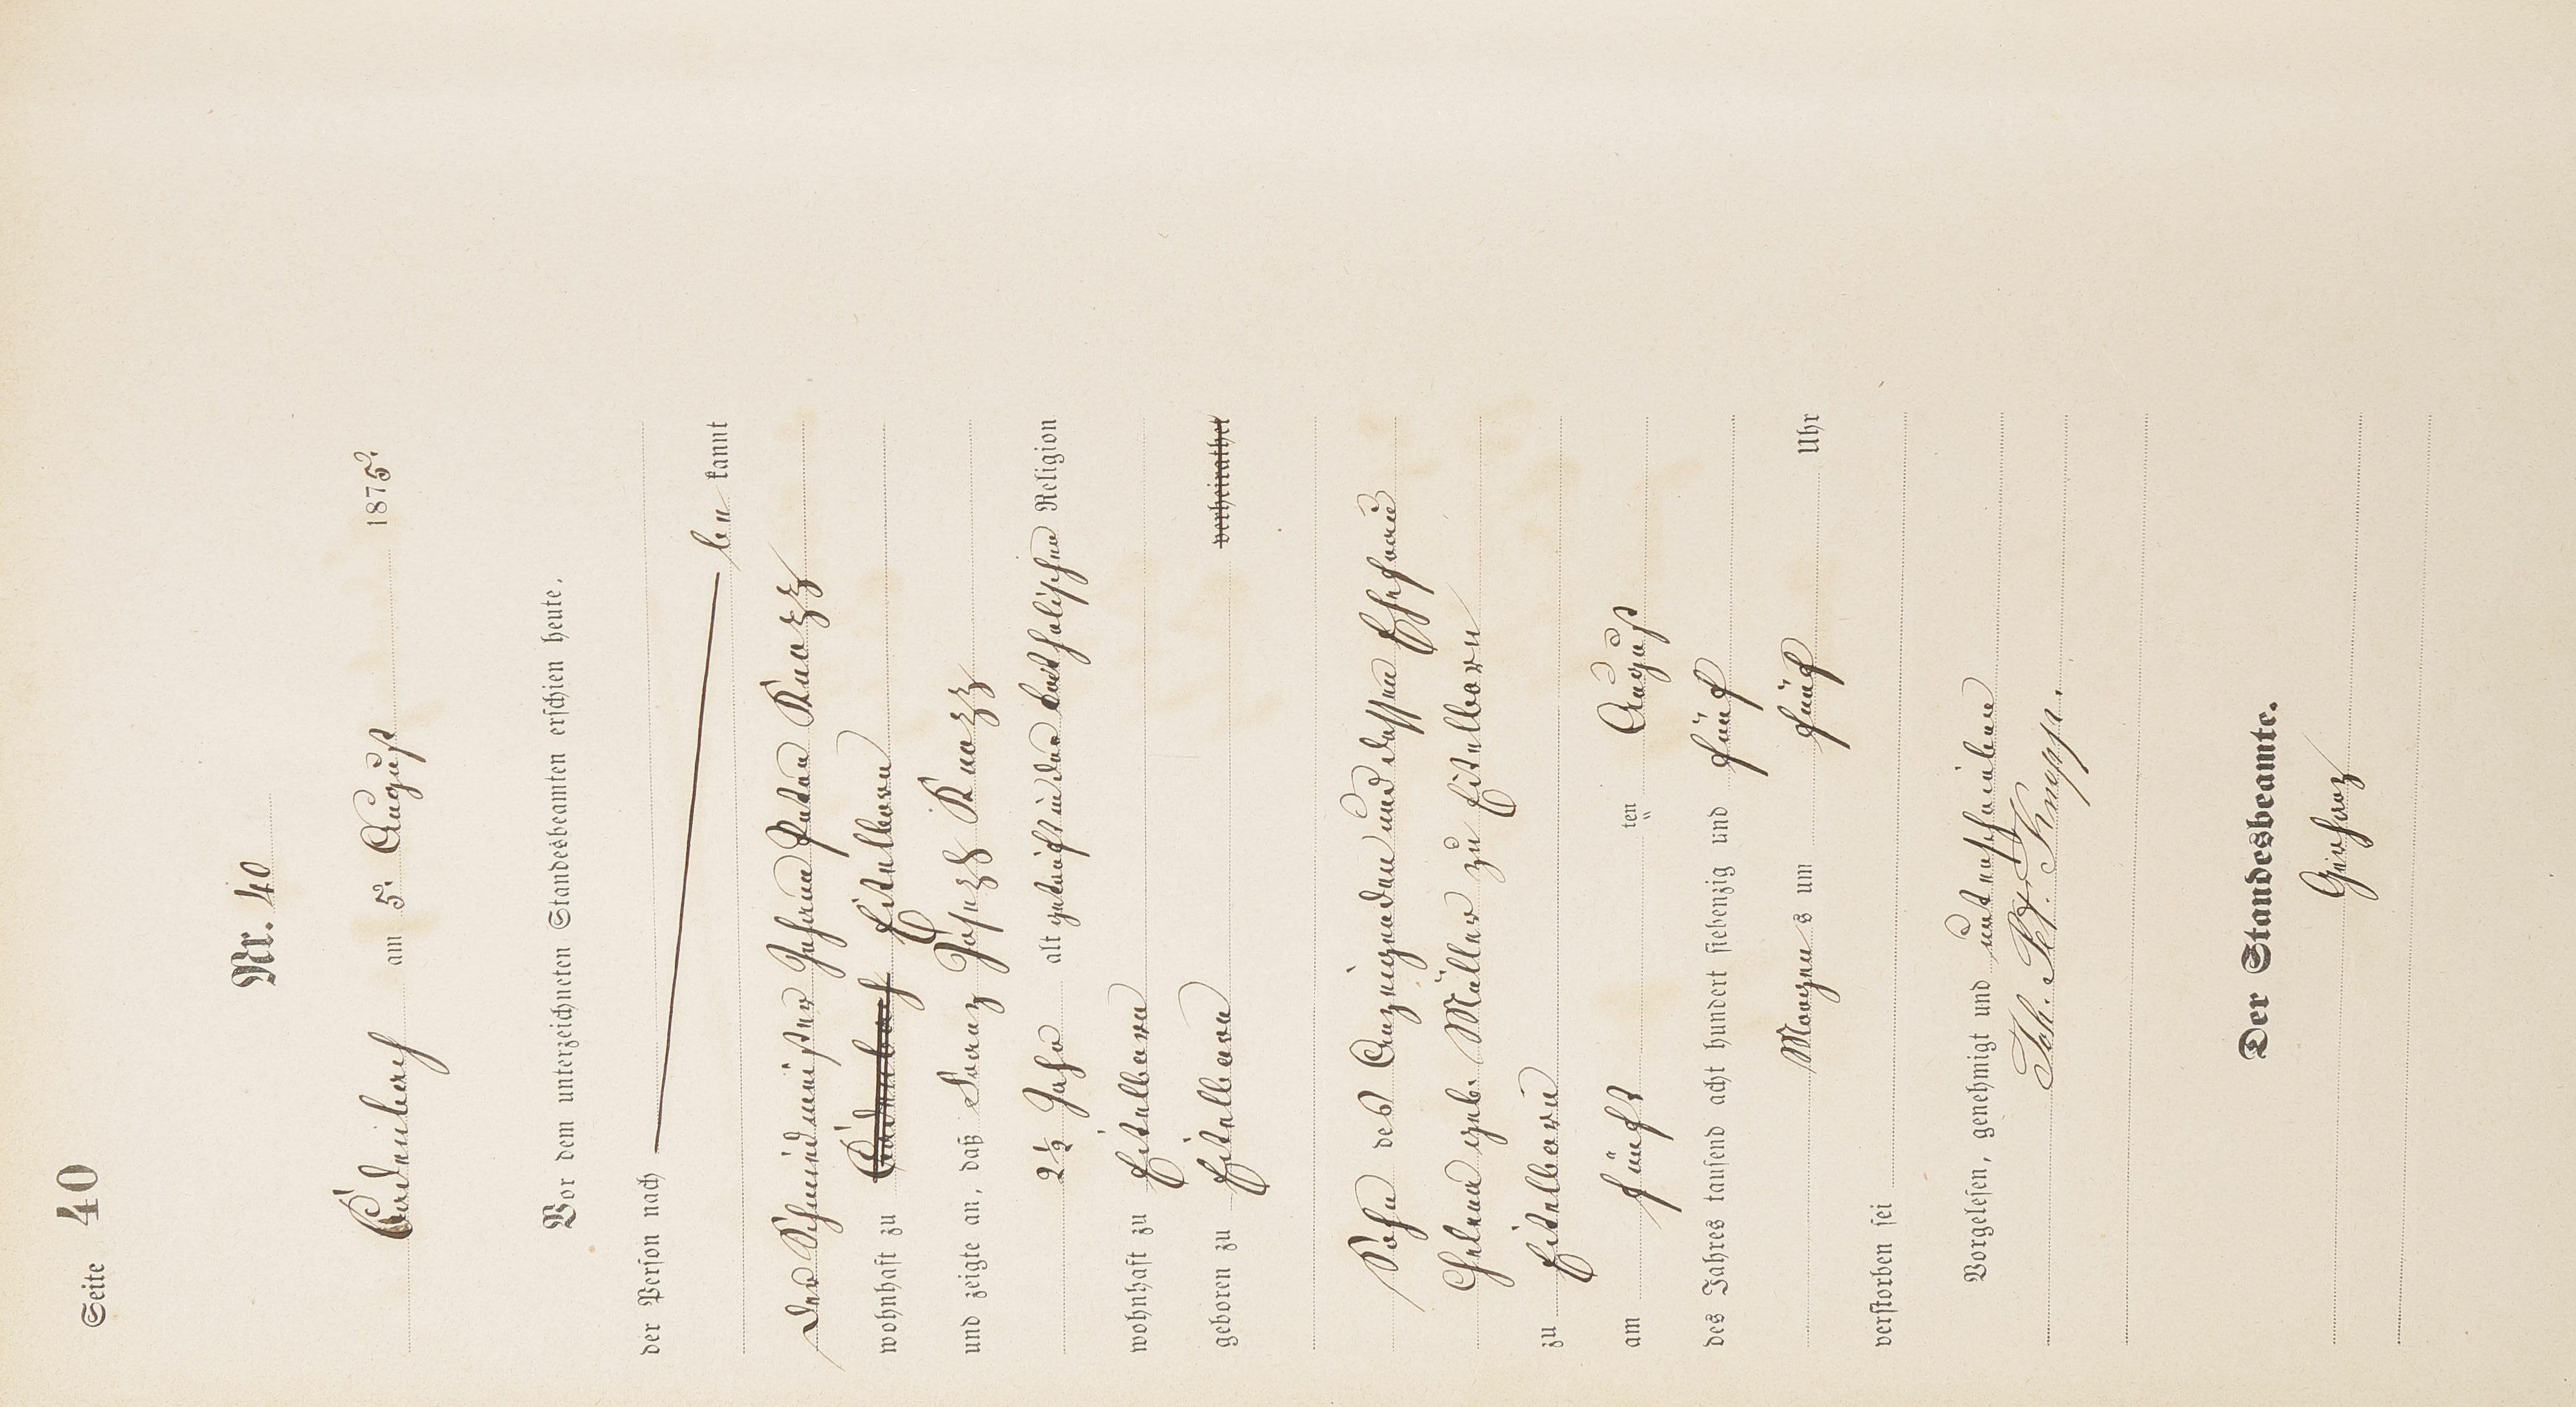 Seite 40
Nr. 40
Cadenbach am 5. August 1875.
Vor dem unterzeichneten Standesbeamten erschien heute,
der Person nach
be kannt
der Schmiedemeister Johann Peter Knopp
wohnhaft zu Cadenbach Eitelborn
und zeigte an, daß Franz Joseph Knopp
2½ Jahr alt katholischer Religion
wohnhaft zu Eitelborn
geboren zu Eitelborn verheirathet
Sohn des Anzeigenden und dessen Ehefrau
Helena geb. Müller zu Eitelborn
zu Eitelborn
am fünf ten August
des Jahres tausend acht hundert siebenzig und fünf
Morgen s um fünf Uhr
verstorben sei
Vorgelesen, genehmigt und unterschrieben
Joh. Pet. Knopp.
Der Standesbeamte.